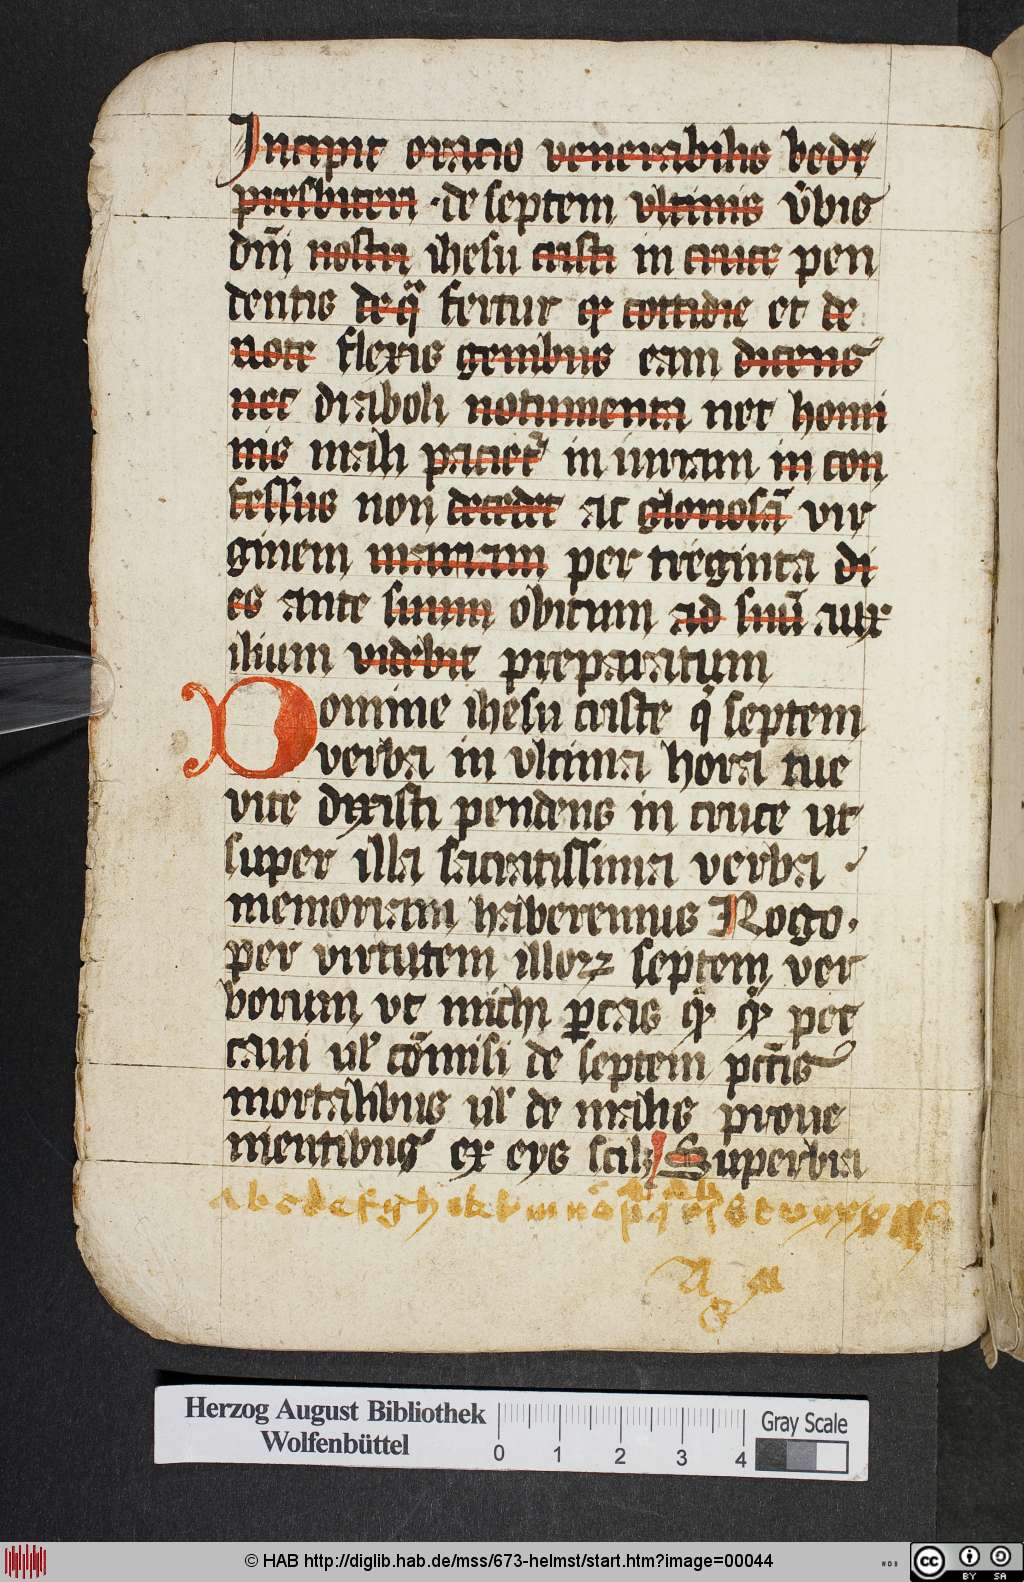 Incipit oracio venerabilis bede
presbiteri · de septem ultimis v̄bis
dn̄i nostri ihesu cristi in cruce pen
dentis de qͣ fertur qꝫ cottidie et de
uote flexis genibus eam dicens
nec diaboli nocumenta nec homi
nis mali pacietᷣ in uitam in con
fessus non decedet ac gloriosā vir
ginem mariam per treginta di
es ante suum obitum ad suū aux
ilium videbit preparatum
Domine ihesu criste qͥ septem
verba in ultima hora tue
vite dixisti pendens in cruce ut
super illa sacratissima verba
memoriam haberemus Rogo ·
per virtutem illoꝝ septem ver
borum vt michi ꝑcas qͥcqͥd pec
caui ul̛ cōmisi de septem pctīs
mortalibus ul̛ de malis proue
nientibus ex eys scilꝫ Superbia
a b c d e f g h i k l m n o p q r ſ s t v
Herzog August Bibliothek
Wolfenbüttel
0 1 2 3 4
Gray Scale
© HAB http://diglib.hab.de/mss/673-helmst/start.htm?image=00044
WDB
cc BY SA